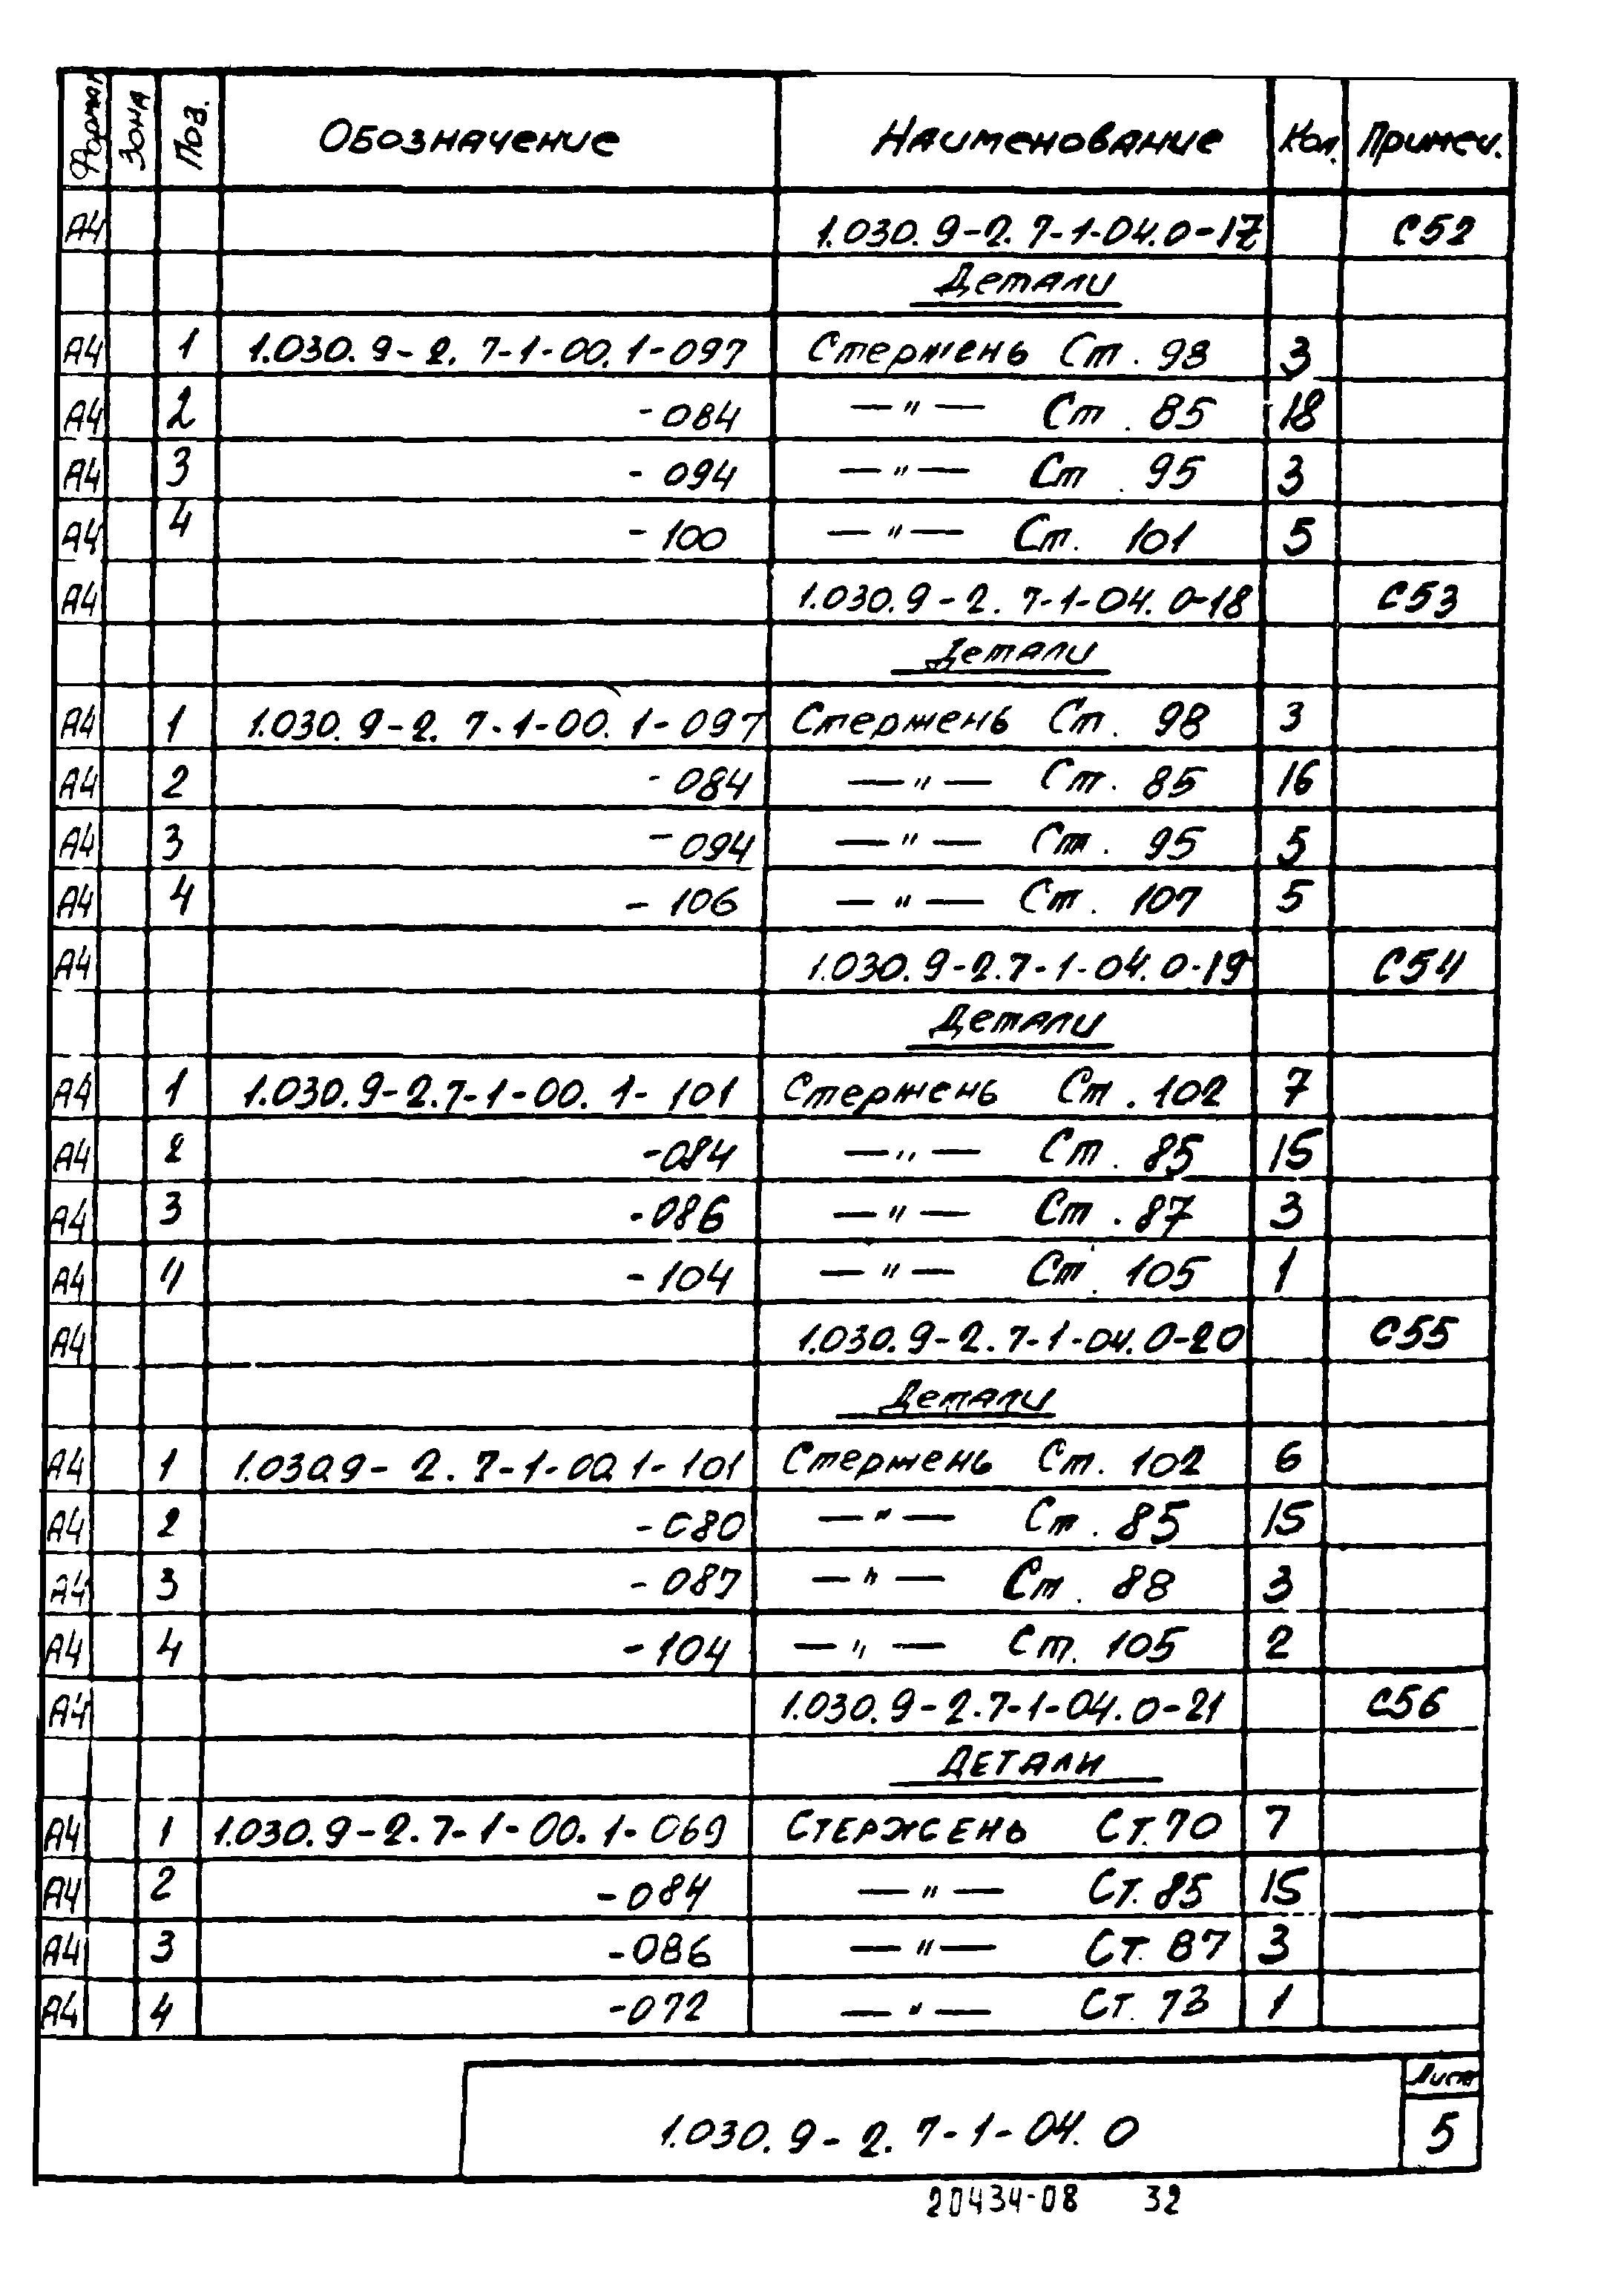 Формат Зона Поз. Обозначение Наименование Кол. Примеч.
А4 1.030.9-2.7-1-04.0-17 С52
Детали
А4 1 1.030.9-2.7-1-00.1-097 Стержень Ст. 98 3
А4 2 -084 —〃— Ст. 85 18
А4 3 -094 —〃— Ст. 95 3
А4 4 -100 —〃— Ст. 101 5
А4 1.030.9-2.7-1-04.0-18 С53
Детали
А4 1 1.030.9-2.7-1-00.1-097 Стержень Ст. 98 3
А4 2 -084 —〃— Ст. 85 16
А4 3 -094 —〃— Ст. 95 5
А4 4 -106 —〃— Ст. 107 5
А4 1.030.9-2.7-1-04.0-19 С54
Детали
А4 1 1.030.9-2.7-1-00.1-101 Стержень Ст. 102 7
А4 2 -084 —〃— Ст. 85 15
А4 3 -086 —〃— Ст. 87 3
А4 4 -104 —〃— Ст. 105 1
А4 1.030.9-2.7-1-04.0-20 С55
Детали
А4 1 1.030.9-2.7-1-00.1-101 Стержень Ст. 102 6
А4 2 -080 —〃— Ст. 85 15
А4 3 -087 —〃— Ст. 88 3
А4 4 -104 —〃— Ст. 105 2
А4 1.030.9-2.7-1-04.0-21 С56
ДЕТАЛИ
А4 1 1.030.9-2.7-1-00.1-069 СТЕРЖЕНЬ Ст. 70 7
А4 2 -084 —〃— Ст. 85 15
А4 3 -086 —〃— Ст. 87 3
А4 4 -072 —〃— Ст. 73 1
Лист
1.030.9-2.7-1-04.0 5
20434-08 32